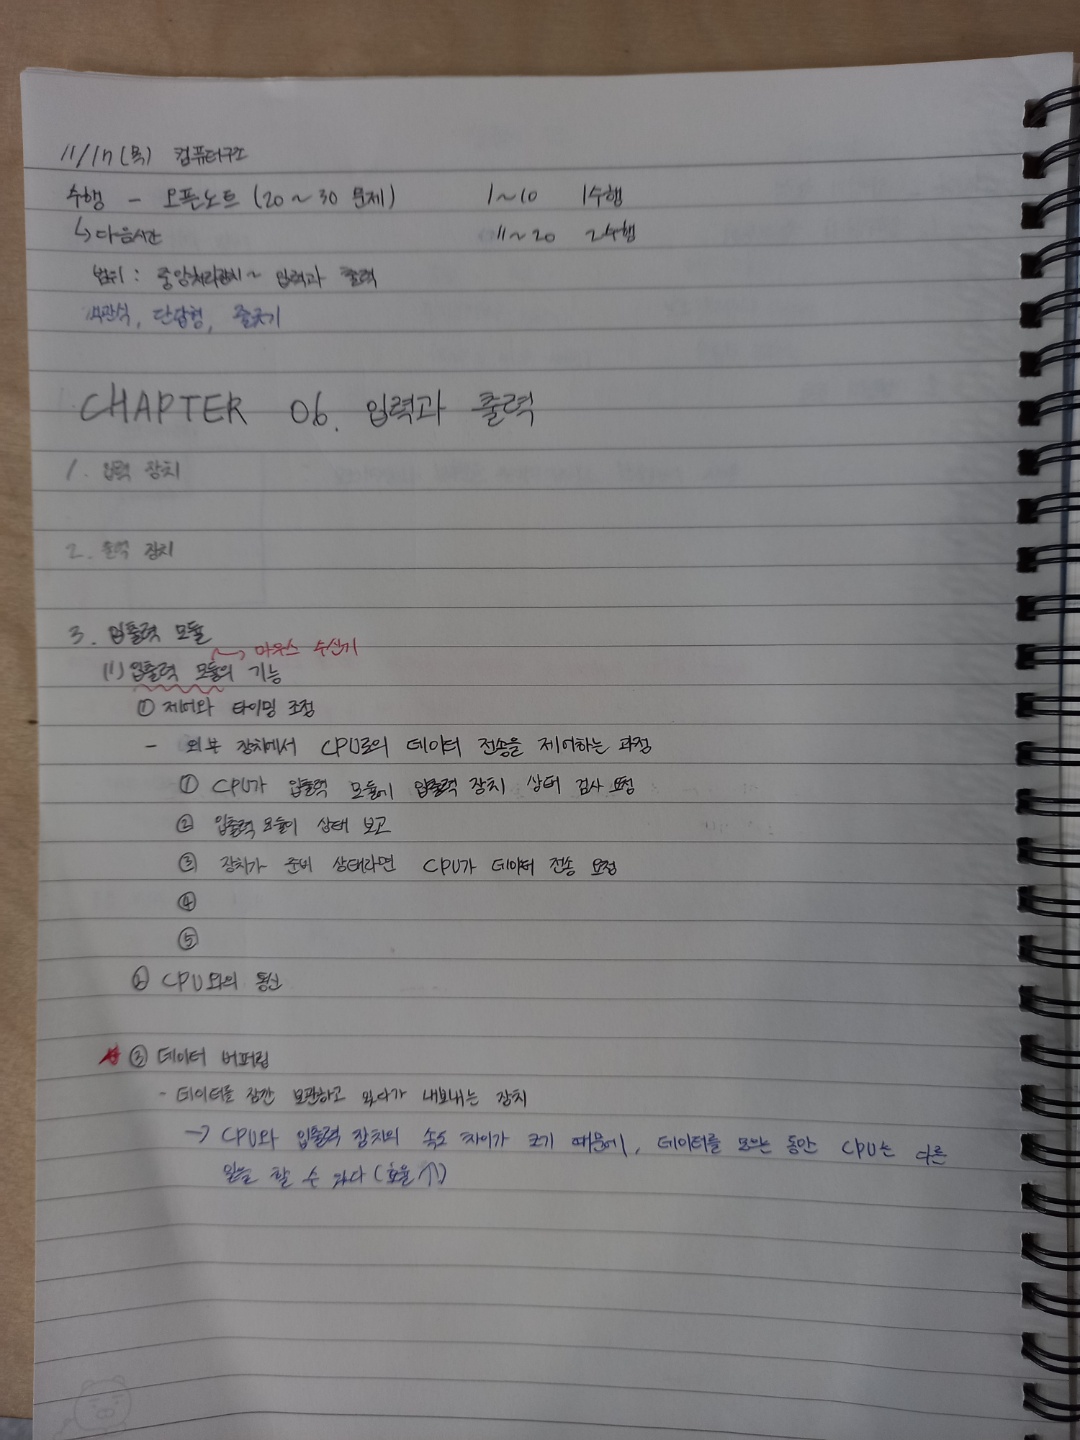 11/17(목) 컴퓨터구조
수행 - 오픈노트 (20 ~ 30 문제) 1~10 1수행
↳다음시간 11~20 2수행
범위 : 중앙처리장치~ 입력과 출력
객관식, 단답형, 줄긋기
CHAPTER 06. 입력과 출력
1. 입력 장치
2. 출력 장치
3. 입출력 모듈
마우스 수신기
(1) 입출력 모듈의 기능
① 제어와 타이밍 조정
- 외부 장치에서 CPU로의 데이터 전송을 제어하는 과정
① CPU가 입출력 모듈에 입출력 장치 상태 검사 요청
② 입출력 모듈이 상태 보고
③ 장치가 준비 상태라면 CPU가 데이터 전송 요청
④
⑤
② CPU와의 통신
★ ③ 데이터 버퍼링
- 데이터를 잠깐 보관하고 있다가 내보내는 장치
→ CPU와 입출력 장치의 속도 차이가 크기 때문에, 데이터를 모으는 동안 CPU는 다른
일을 할 수 있다 (효율↑)